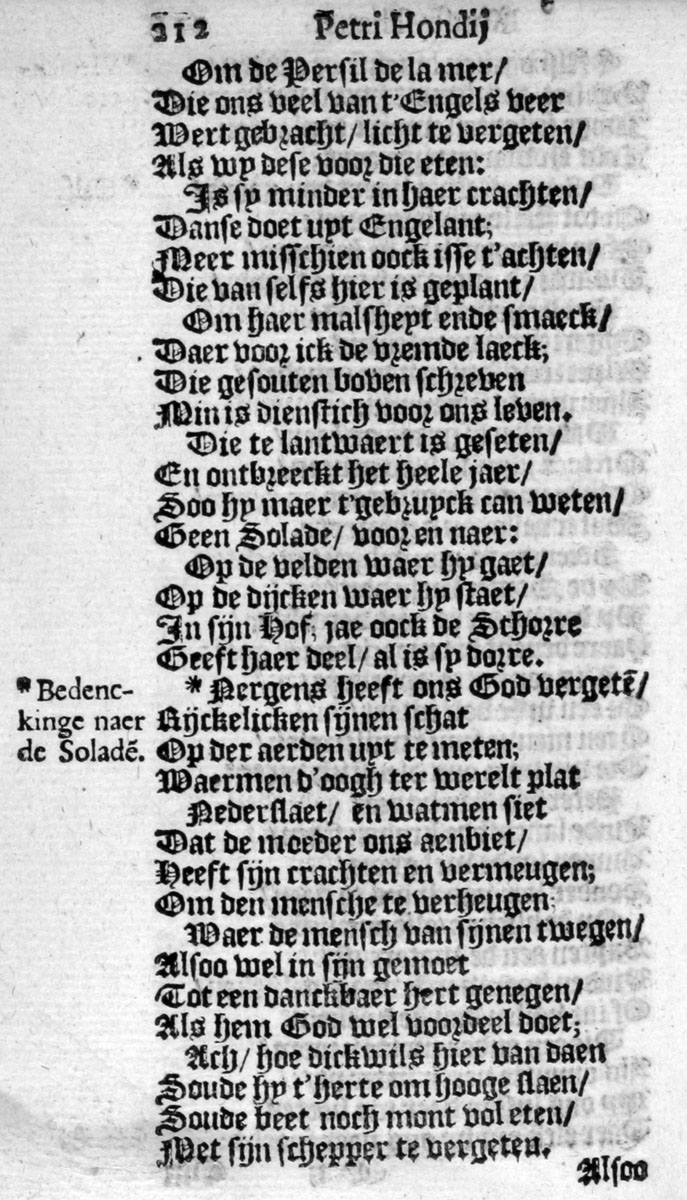 212 Petri Hondij
Om de Persil de la mer/
Die ons veel van t'Engels veer
Wert gebracht/ licht te vergeten/
Als wy dese voor die eten:
Is sy minder in haer crachten/
Danse doet uyt Engelant;
Meer misschien oock isse t'achten/
Die van selfs hier is geplant/
Om haer malsheyt ende smaeck/
Daer voor ick de vremde laeck;
Die gesouten boven schreven
Min is dienstich voor ons leven.
Die te lantwaert is geseten/
En ontbreeckt het heele jaer/
Soo hy maer t'gebruyck can weten/
Geen Solade/ voor en naer:
Op de velden waer hy gaet/
Op de dijcken waer hy staet/
In sijn Hof; jae oock de Schorre
Geeft haer deel/ al is sy dorre.
* Nergens heeft ons God vergetē/
Rijckelicken sijnen schat
Op der aerden uyt te meten;
Waermen d'oogh ter werelt plat
Nederslaet/ en watmen siet
Dat de moeder ons aenbiet/
Heeft sijn crachten en vermeugen;
Om den mensche te verheugen:
Waer de mensch van sijnen twegen/
Alsoo wel in sijn gemoet
Tot een danckbaer hert genegen/
Als hem God wel voordeel doet;
Ach/ hoe dickwils hier van daen
Soude hy t'herte om hooge slaen/
Soude beet noch mont vol eten/
Met sijn schepper te vergeten.
Alsoo
* Bedenc-
kinge naer
de Soladē.